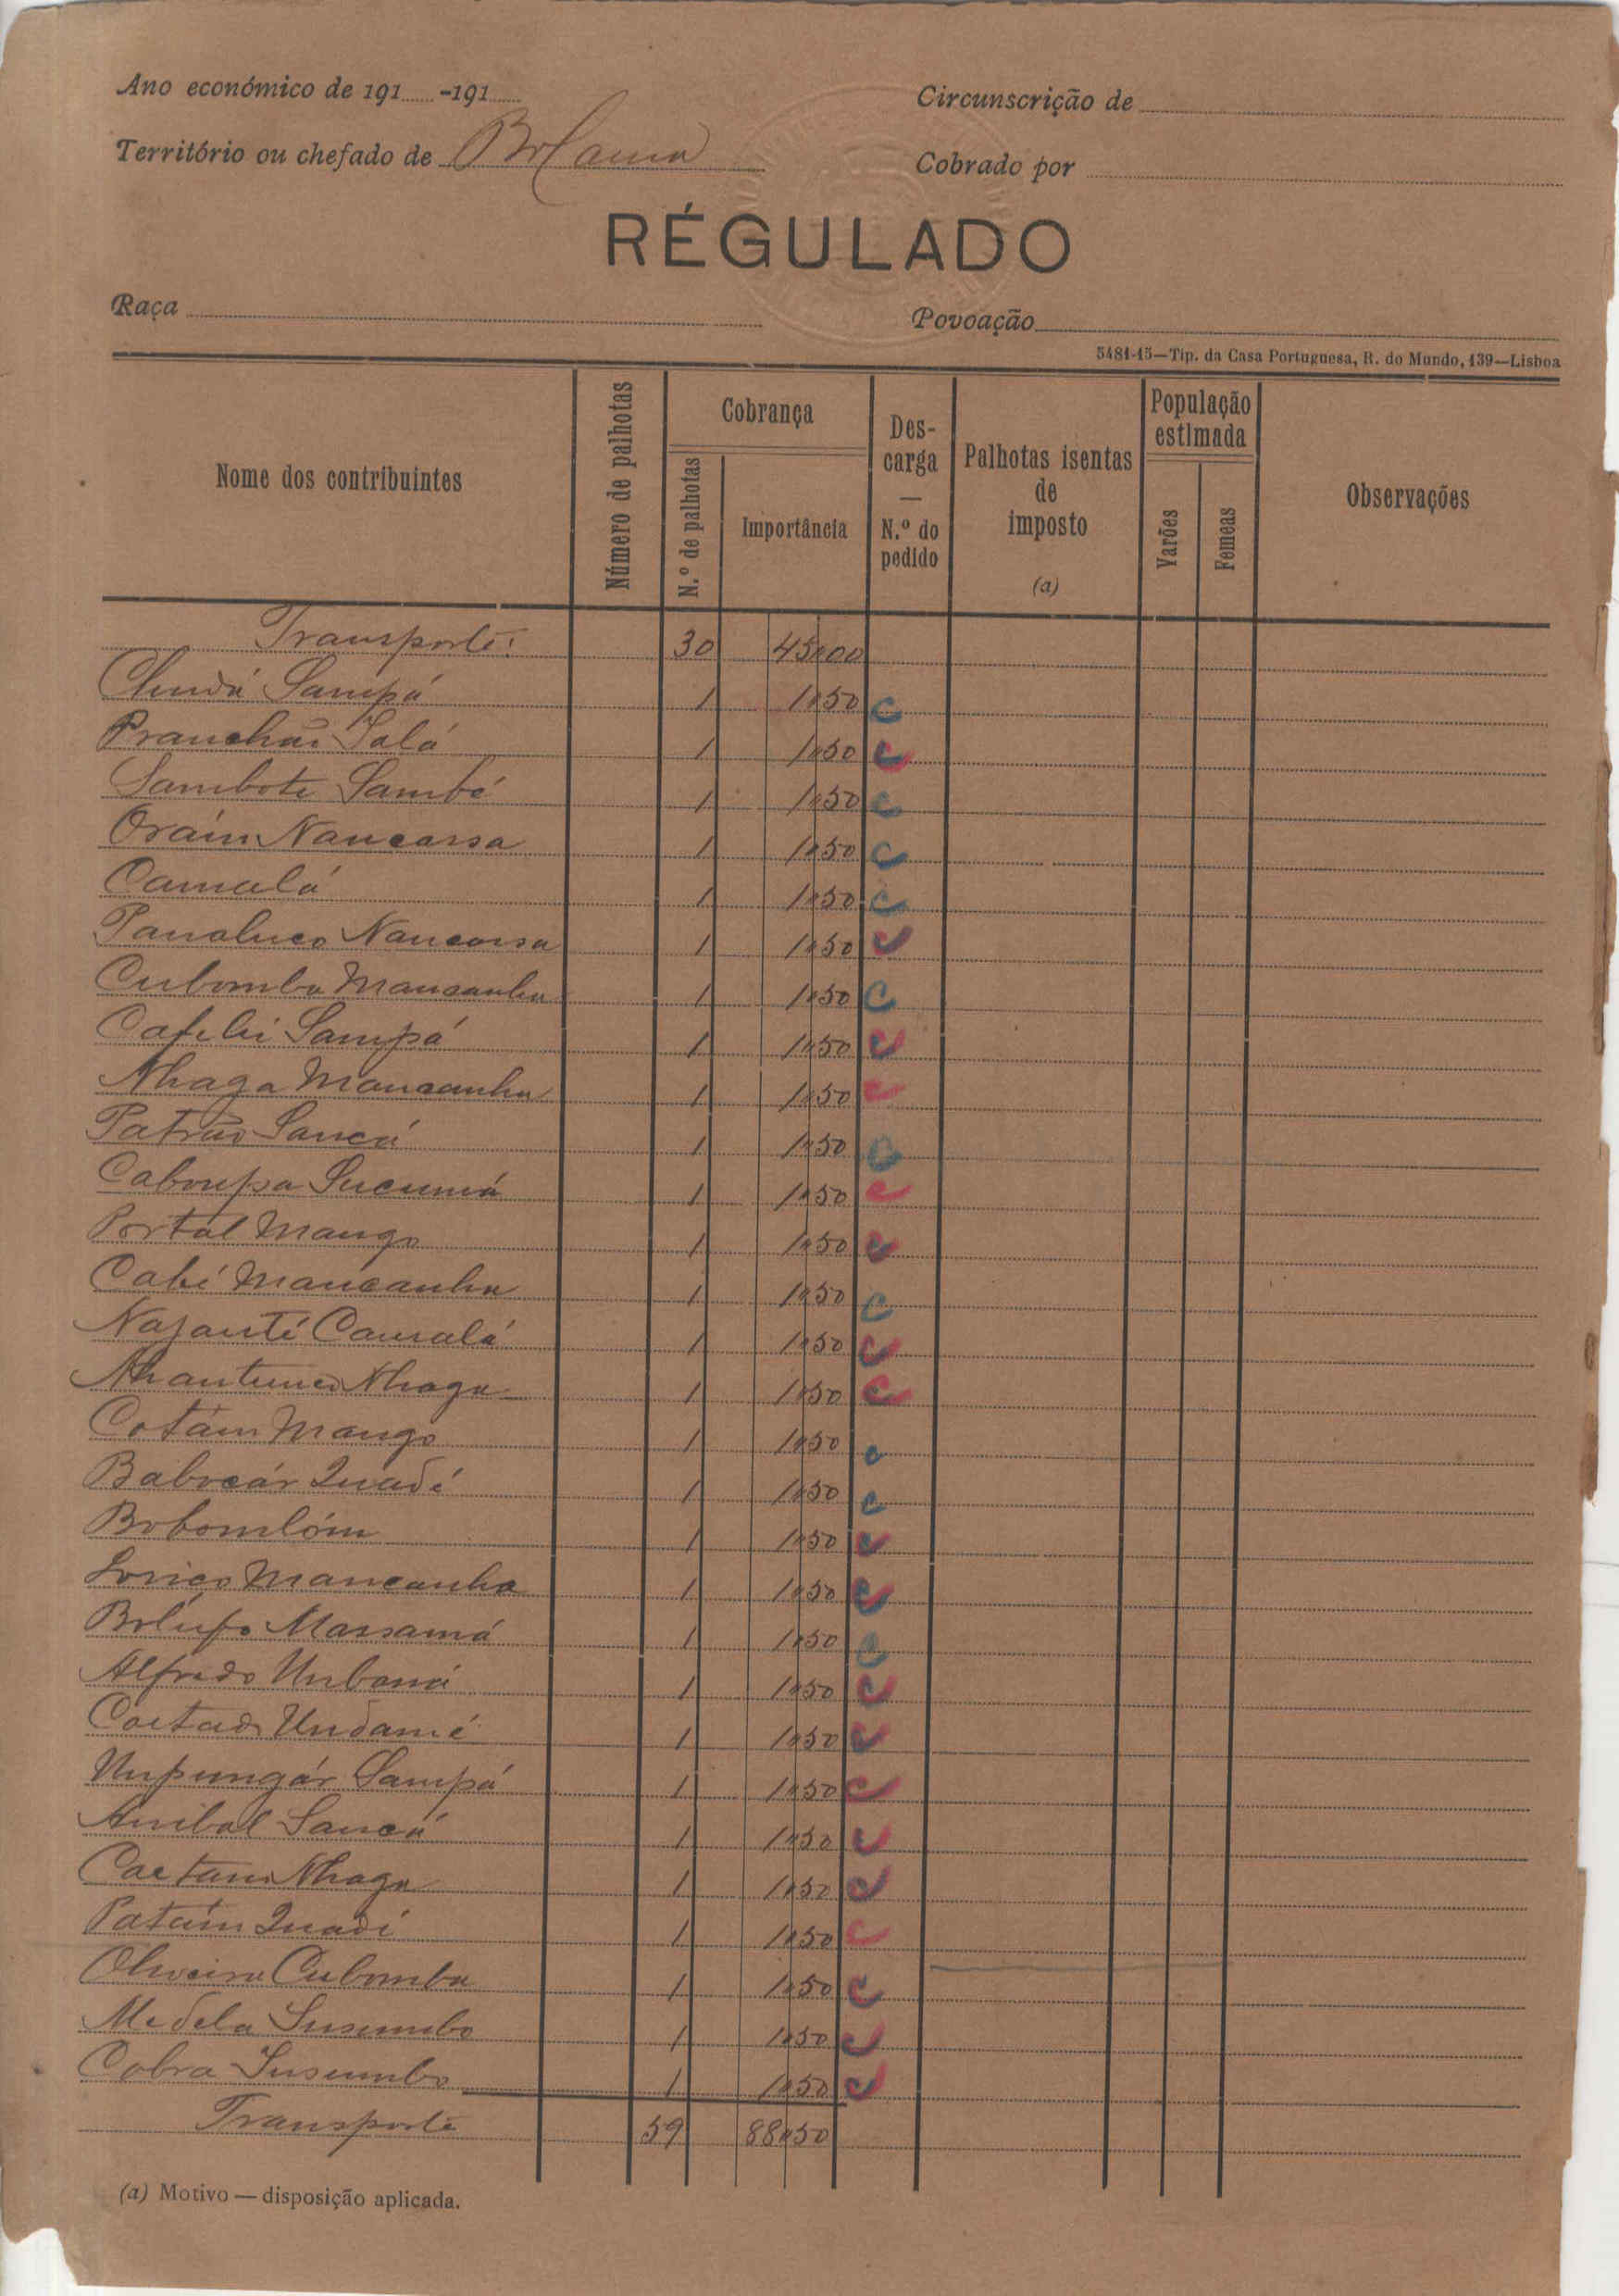 Ano económico de 191...... -191......
Circunscrição de
Território ou chefado de Bolama
Cobrado por
RÉGULADO
Raça
Povoação
5481-15—Tip. da Casa Portuguesa, R. do Mundo, 139—Lisboa
Nome dos contribuintes
Número de palhotas
Cobrança
N.º de palhotas
Importância
Des-
carga
—
N.º do
pedido
Palhotas isentas
de
imposto
(a)
População
estimada
Varões
Femeas
Observações
Transporte: 30 45$00
Sampá 1 1$50 C
Pranchão Salá 1 1$50 C
Sambote Sambé 1 1$50 C
Oraim Nancassa 1 1$50 C
Camalá 1 1$50 C
Nancassa 1 1$50 C
Cubomba Mancanha 1 1$50 C
Cafebi Sampá 1 1$50 C
Nhaga Mancanha 1 1$50 C
Patrão Sancá 1 1$50 C
Caboupa Sucumá 1 1$50 C
Portal Mango 1 1$50 C
Cabé Mancanha 1 1$50 C
Najanté Camalá 1 1$50 C
Nhaga 1 1$50 C
Cotám Mango 1 1$50 C
Babocár Quadé 1 1$50 C
Bobomlóm 1 1$50 C
Mancanha 1 1$50 C
Bolufo Massamá 1 1$50 C
Alfredo Unboná 1 1$50 C
Undamé 1 1$50 C
Unpungár Sampá 1 1$50 C
Anibal Sancá 1 1$50 C
Caetano Nhaga 1 1$50 C
Patám Quadé 1 1$50 C
Oliveira Cubomba 1 1$50 C
Medela Susumbo 1 1$50 C
Cobra Susumbo 1 1$50 C
Transporte 59 88$50
(a) Motivo — disposição aplicada.